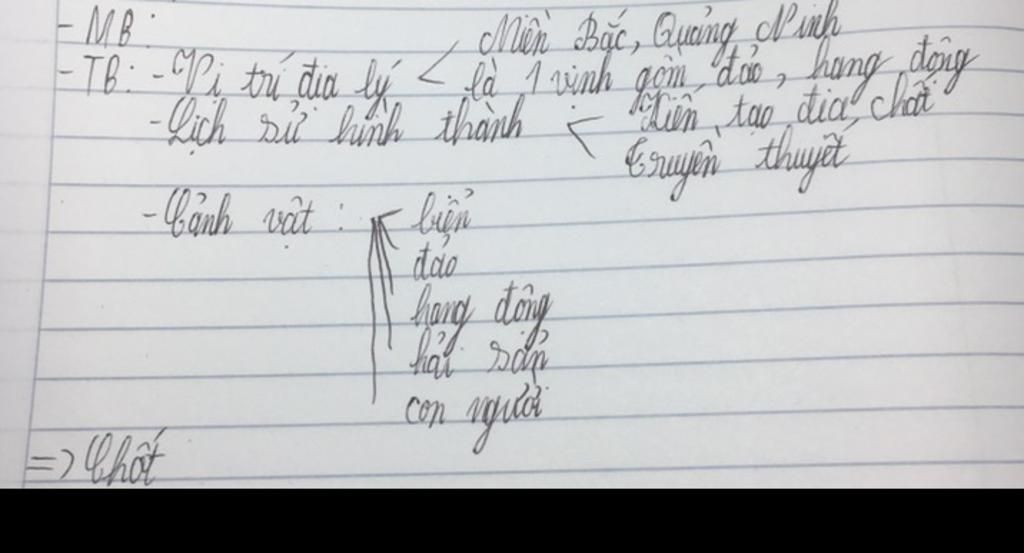 - MB:
Miền Bắc, Quảng Ninh
- TB: - Vị trí địa lý < là 1 vịnh gồm đảo, hang động
- Lịch sử hình thành < Kiến tạo địa chất
truyền thuyết
- Cảnh vật: biển
đảo
hang động
hải sản
con người
=> Chốt